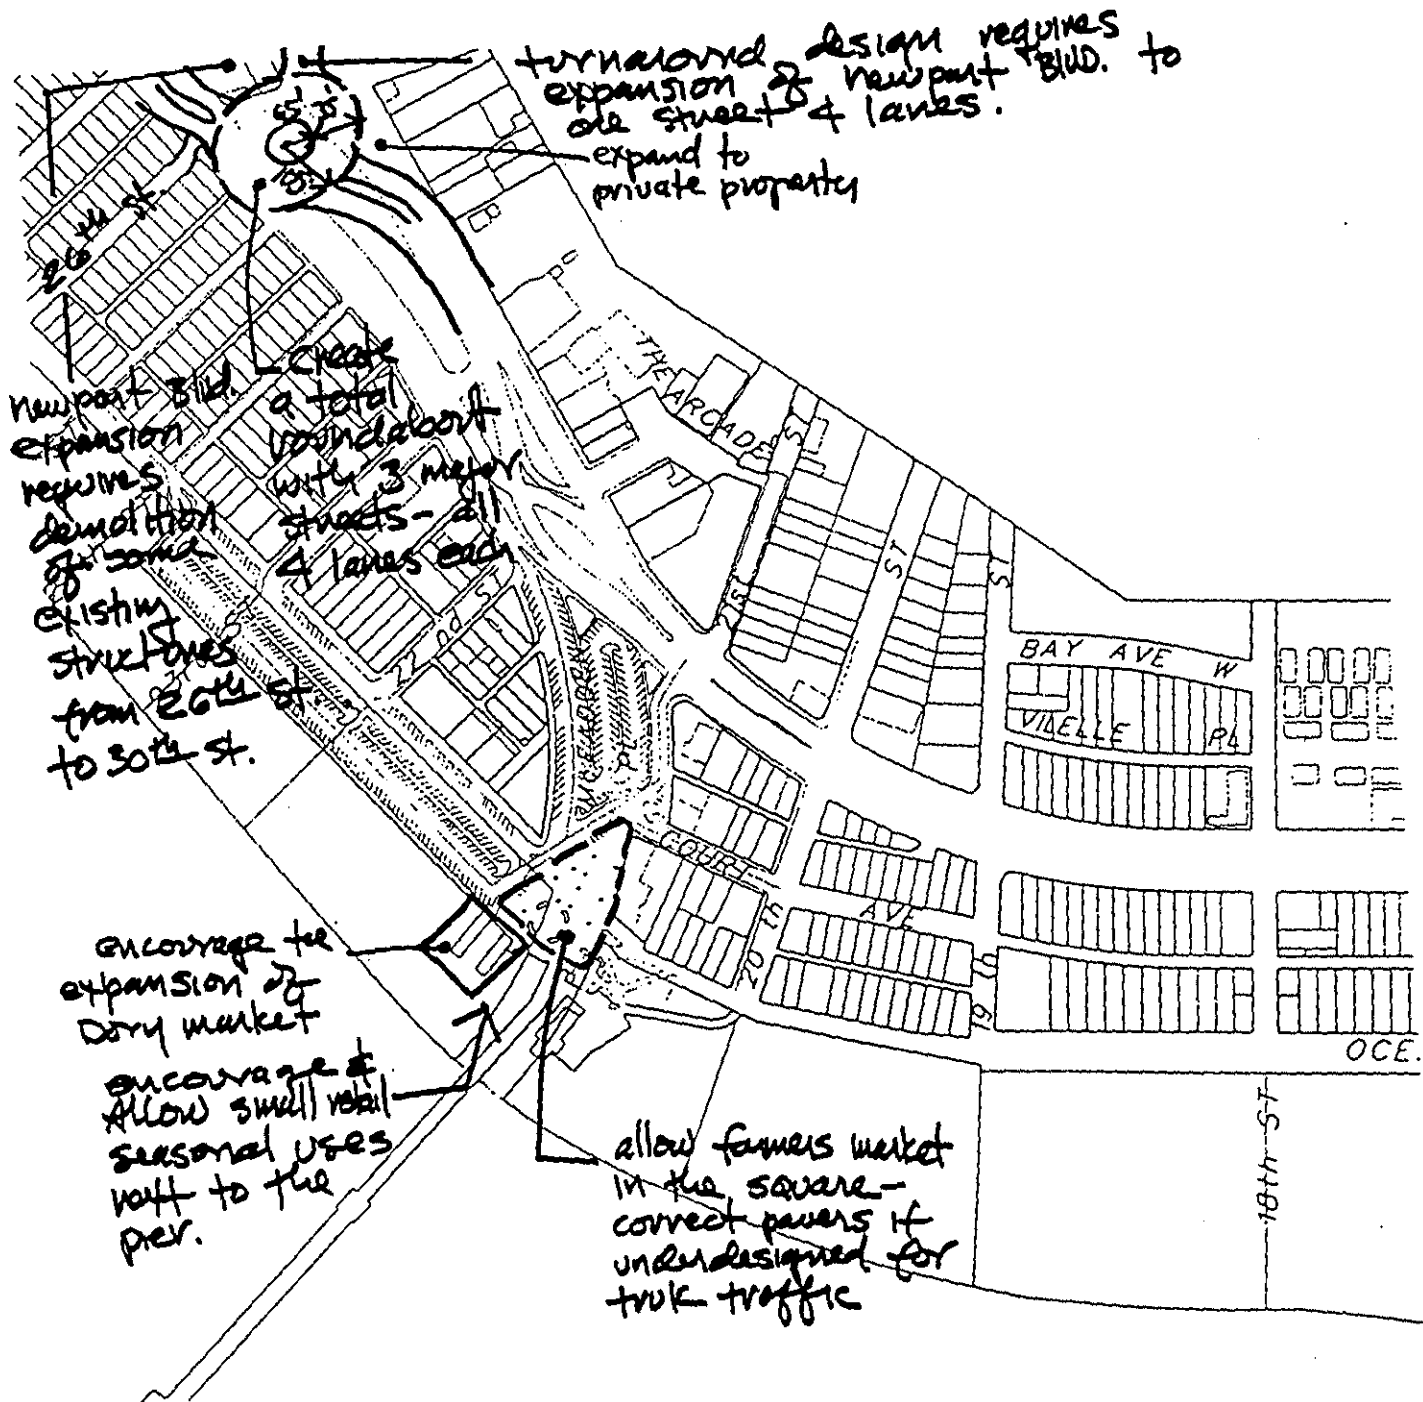 turnaround design requires
expansion of newport BLVD. to
one street 4 lanes.
expand to
private property
26th st.
newport Blvd.
expansion
requires
demolition
of some
existing
structures
from 26th st
to 30th st.
create
a total
roundabout
with 3 major
streets - all
4 lanes each
THE ARCADE
21st
ST
ST
ST
22nd ST
BAY AVE W
VILELLE PL
COURT
AVE
20TH
19TH
OCE.
18th ST
encourage the
expansion of
Dory market
encourage &
Allow small retail
seasonal uses
next to the
pier.
allow farmers market
in the square -
correct pavers if
underdesigned for
truk traffic